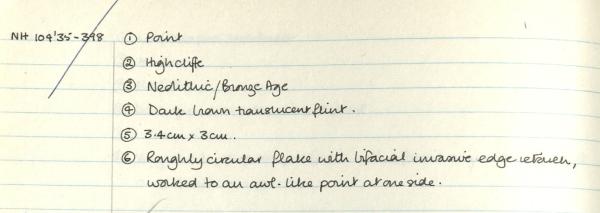 NH 104'35-398 ① Point
② Highcliffe
③ Neolithic/Bronze Age
④ Dark brown translucent flint.
⑤ 3.4cm x 3cm.
⑥ Roughly circular flake with bifacial invasive edge retouch,
worked to an awl-like point at one side.